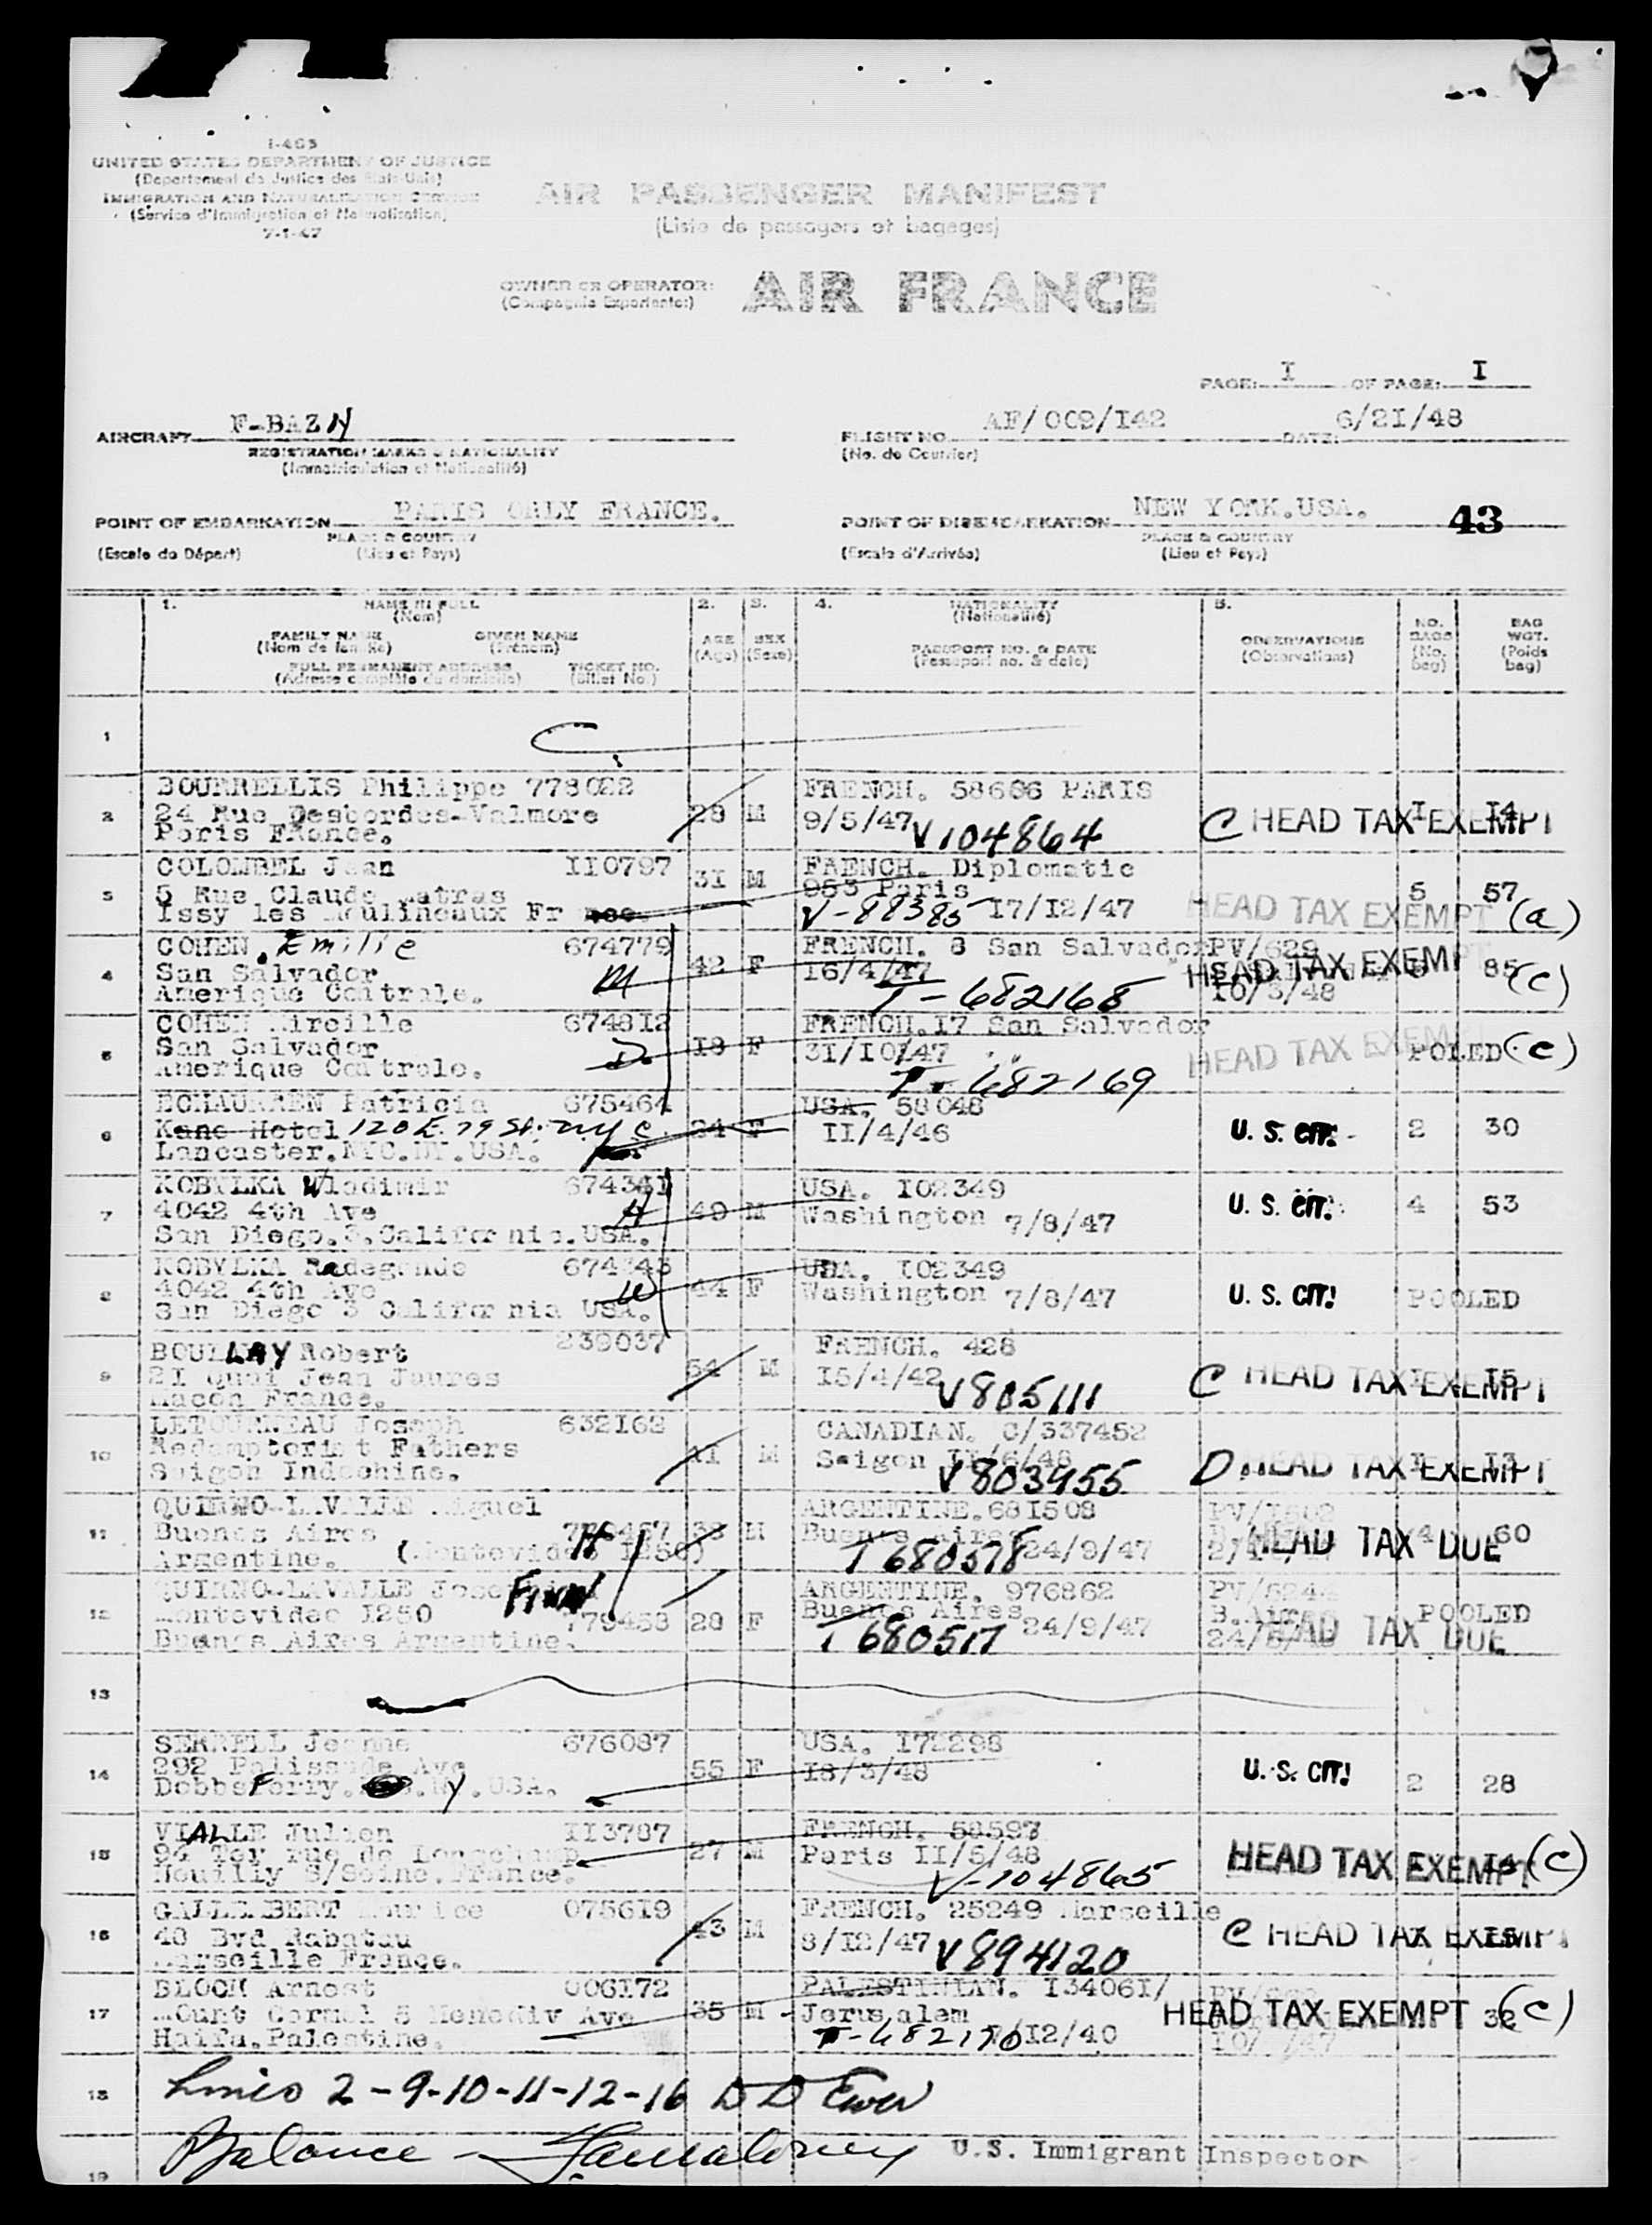 I-463
UNITED STATES DEPARTMENT OF JUSTICE
(Departement de Justice des Etats-Unis)
IMMIGRATION AND NATURALIZATION SERVICE
(Service d'Immigration et Naturalisation)
7-1-47
AIR PASSENGER MANIFEST
(Liste de passagers et bagages)
OWNER OR OPERATOR: AIR FRANCE
PAGE: I OF PAGE: I
AIRCRAFT F-BAZN
REGISTRATION MARKS & NATIONALITY
(Immatriculation et Nationalité)
FLIGHT NO. AF/009/I42 DATE: 6/2I/48
(No. de Courrier)
POINT OF EMBARKATION PARIS ORLY FRANCE.
PLACE & COUNTRY
(Escale du Départ) (Lieu et Pays)
POINT OF DISEMBARKATION NEW YORK.USA. 43
PLACE & COUNTRY
(Escale d'Arrivée) (Lieu et Pays)
1. NAME IN FULL 2. 3. 4. NATIONALITY 5.
(Nom) (Nationalité)
FAMILY NAME GIVEN NAME AGE SEX OBSERVATIONS NO. BAGS BAG WGT.
(Nom de famille) (Prénom) (Age) (Sexe) PASSPORT NO. & DATE (Observations) (No. bag) (Poids bag)
FULL PERMANENT ADDRESS TICKET NO. (Passeport no. & date)
(Adresse complète du domicile) (Billet No.)
1
2 BOURRELLIS Philippe 778022 28 M FRENCH. 58606 PARIS
24 Rue Desbordes-Valmore 9/5/47 V104864 C HEAD TAX EXEMPT I I4
Paris France.
3 COLOMBEL Jean II0797 3I M FRENCH. Diplomatic
5 Rue Claude Matras 953 Paris 5 57
Issy les Moulineaux France. V-88385 I7/I2/47 HEAD TAX EXEMPT (a)
4 COHEN. Emilie 674779 42 F FRENCH. 8 San Salvador PV/629
San Salvador M I6/4/47 HEAD TAX EXEMPT 85 (c)
Amerique Centrale. T-682168 I0/3/48
5 COHEN Mireille 6748I2 I8 F FRENCH.I7 San Salvador
San Salvador D 3I/I0/47 HEAD TAX EXEMPT POLED (c)
Amerique Centrale. T-682169
6 ECHAURREN Patricia 675464 24 F USA. 58048
Kane Hotel 120 E. 79 St. NYC II/4/46 U. S. CIT. 2 30
Lancaster.NYC.NY.USA.
7 KOBYLKA Wladimir 67434I 49 M USA. I02349
4042 4th Ave H Washington 7/8/47 U. S. CIT. 4 53
San Diego.3.California.USA.
8 KOBYLKA Radegonde 674343 44 F USA. I02349
4042 4th Ave W Washington 7/8/47 U. S. CIT! POOLED
San Diego 3 California USA.
9 BOULLAY Robert 239037 54 M FRENCH. 428
2I Quai Jean Jaures I5/4/42 V805111 C HEAD TAX EXEMPT I I5
Macon France.
10 LETOURNEAU Joseph 632I62 41 M CANADIAN. C/537452
Redemptorist Fathers Saigon II/6/48 D. HEAD TAX EXEMPT I I3
Saigon Indochine. V803455
11 QUIRNO-LAVALLE Miguel 38 M ARGENTINE.68I508
Buenos Aires H Buenos Aires 24/9/47 HEAD TAX DUE 4 60
Argentine. (Montevideo I250) T680578
12 QUIRNO-LAVALLE 779458 28 F ARGENTINE. 976862
Montevideo I250 Buenos Aires 24/9/47 B.Aires POOLED
Buenos Aires Argentine. T680517 HEAD TAX DUE
13
14 SERRELL Jeanne 676087 55 F USA. I72298
292 Palissade Ave I8/3/48 U. S. CIT! 2 28
Dobbs Ferry. Ny.USA.
15 VIALLE Julien II3787 27 M FRENCH. 58597
94 Ter rue de Longchamp Paris II/5/48 HEAD TAX EXEMPT I4 (c)
Neuilly S/Seine.France. V-104865
16 GALLABERT Maurice 0756I9 43 M FRENCH. 25249 Marseille
48 Bvd Rabatau 8/I2/47 V894120 C HEAD TAX EXEMPT I5
Marseille France.
17 BLOCH Arnost 006I72 35 M PALESTINIAN. I3406I/
Mount Carmel 8 Ave Jerusalem HEAD TAX EXEMPT 36 (c)
Haifa.Palestine. T-682170 I2/40
18 Lines 2-9-10-11-12-16 D D Ewer
19 Balance - U.S. Immigrant Inspector